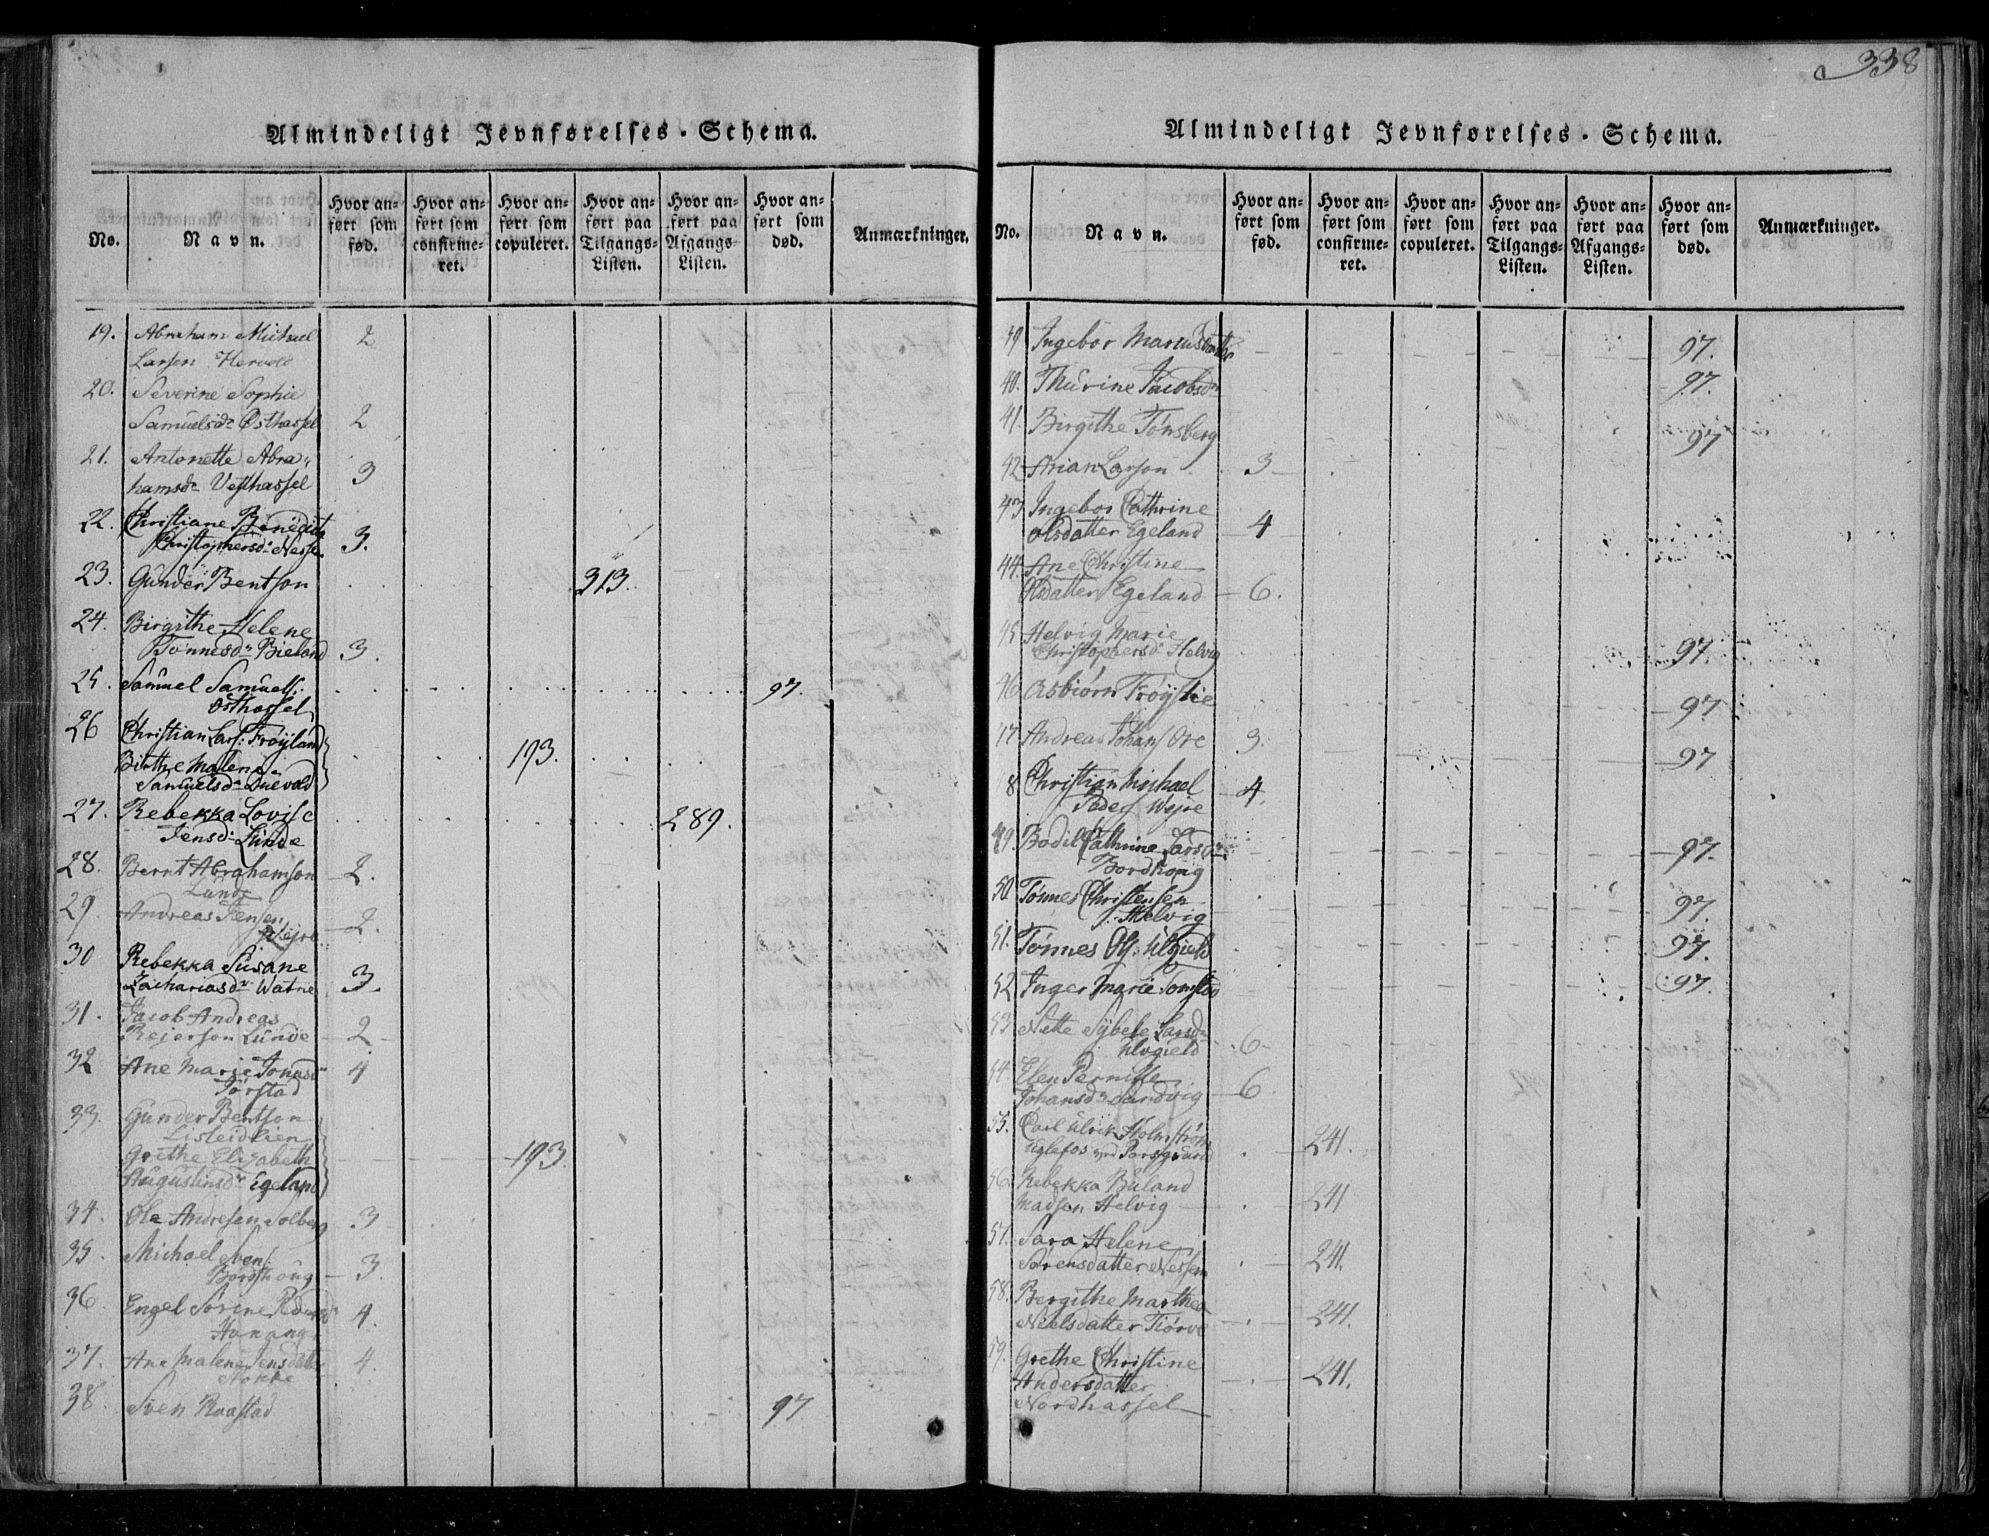 338
Almindeligt Jevnførelses-Schema.
No.
Navn.
Hvor an-
ført som
fød.
Hvor an-
ført som
confirme-
ret.
Hvor an-
ført som
copuleret.
Hvor an-
ført paa
Tilgangs-
Listen.
Hvor an-
ført paa
Afgangs-
Listen.
Hvor an-
ført som
død.
Anmærkninger.
19. Abraham Michael 2
Larsen
20. Severine Sophie
Samuelsdr Østhassel 2
21. Antonette Abra-
hamsdr Vesthassel 3
22. Christiane Benedicte
Christophersdr 3.
23. Gunder Bentson 313.
24. Birgithe Helene
Tønnesdr Bieland 3.
25. Samuel Samuels. 97.
Østhassel
26 Christian Lars: Frøyland
Birthe Malene 193.
Samuelsdr
27. Rebekka Lovise 289.
Jensdr Lunde
28. Bernt Abrahamson 2.
Lunde
29. Andreas Jensen 2.
30 Rebekka Susane
Zachariasdr Watne 3.
31. Jacob Andreas
Rejerson Lunde 2
32 Ane Marie Jonasdr 4
Jørstad
33. Gunder Bentson
Grethe Elisabeth 193.
Augustinsdr Egeland
34. Ole Andresen Solberg 3
35. Michael Svens.
3.
36. Engel Sorine 4.
Hanang
37. Ane Malene Jensdatter 4.
38. Sven Raastad 97
Almindeligt Jevnførelses-Schema.
No.
Navn.
Hvor an-
ført som
fød.
Hvor an-
ført som
confirme-
ret.
Hvor an-
ført som
copuleret.
Hvor an-
ført paa
Tilgangs-
Listen.
Hvor an-
ført paa
Afgangs-
Listen.
Hvor an-
ført som
død.
Anmærkninger.
39 Ingebor 97.
40. Thurine Jacobsdr 97.
41. Birgithe Tønsberg 97
42 Arian Larson 3
43 Ingebor Cathrine
Olsdatter Egeland 4
44. Ane Christine
Olsdatter Egeland 6.
45 Helvig Marie
Christophersdr Helvig 97.
46 Asbiørn 97
47 Andreas Johans Ore 3. 97
8 Christian Michael 4.
49. Bodil Cathrine Larsdr 97.
50 Tønnes Christensen
Helvig 97.
51. Tønnes Ols: Ulgield 97.
52 Inger Marie Tomstad 97.
53 Mette Sybele Larsdr
Ulvgield 6.
54. Elen Pernille
Johansdr Sandvig 6
55. Carl Ulrik Holmstrøm
241.
56. Rebekka Buland
Madsen Helvig 241
57. Sara Helene
Sørensdatter 241.
58. Bergithe Marthea
Nielsdatter Tiørve 241.
59. Grethe Christine
Andersdatter 241.
Nordhassel